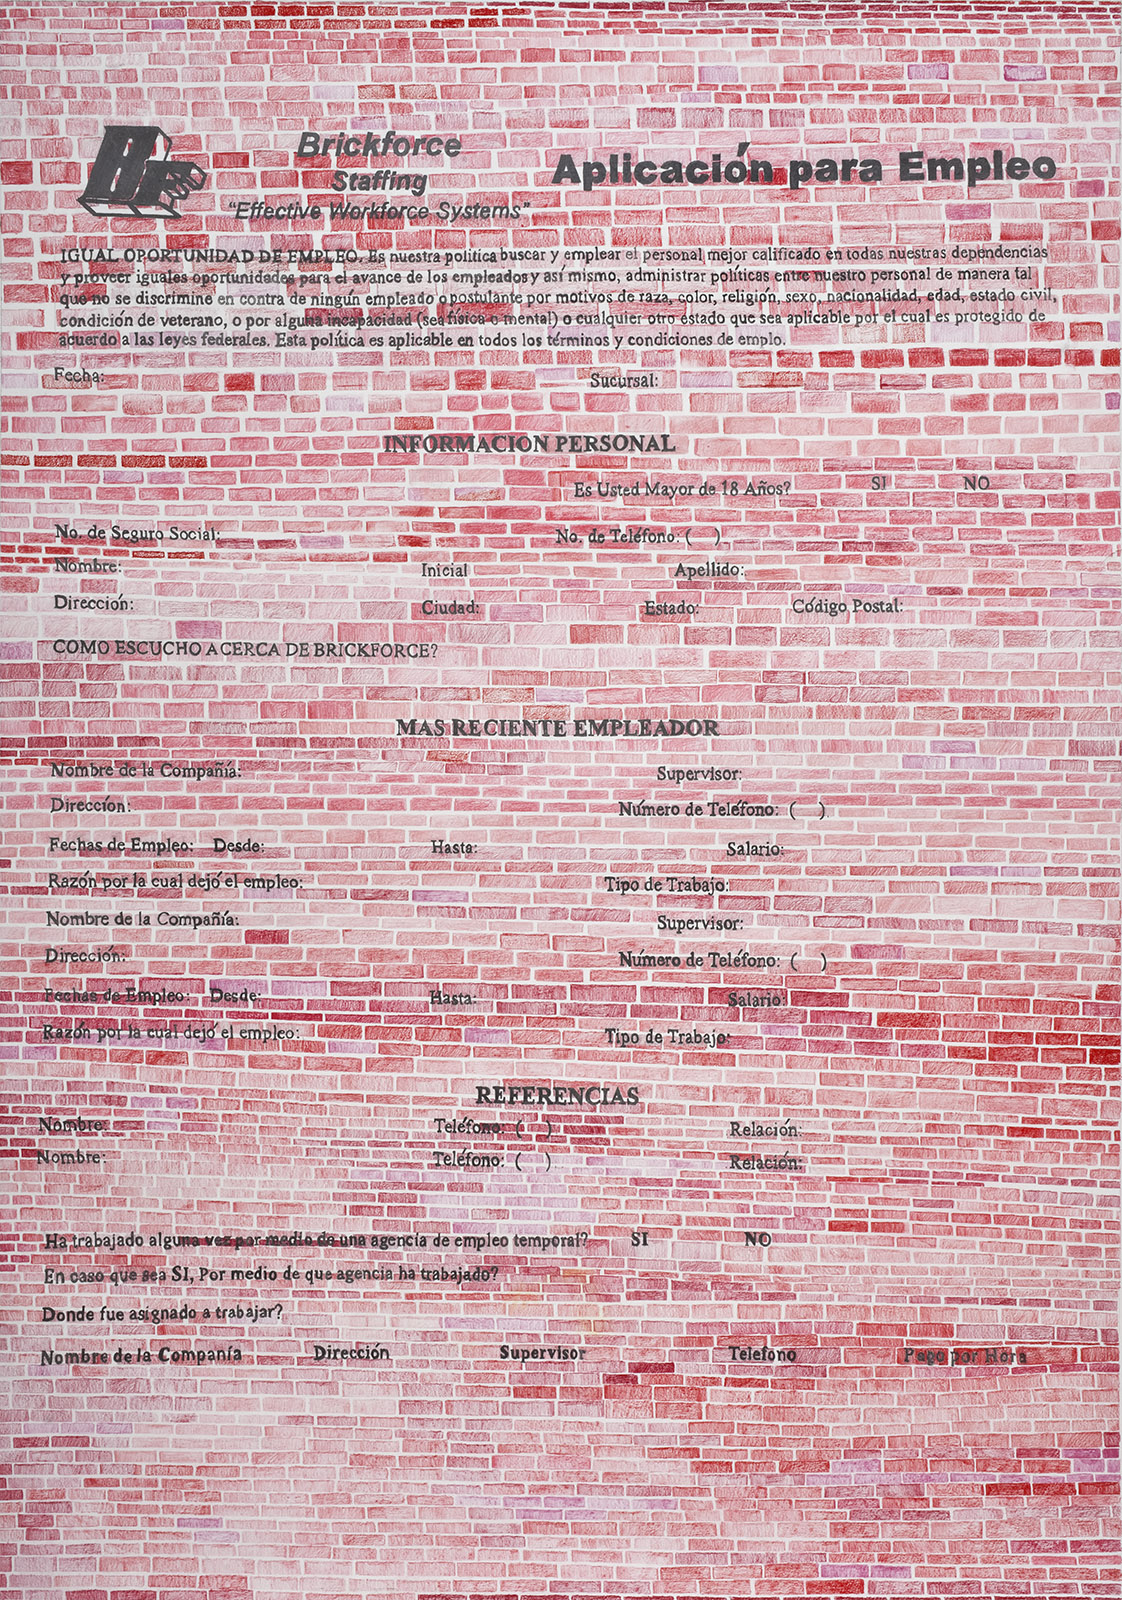 Brickforce
Staffing
"Effective Workforce Systems"
Aplicación para Empleo
IGUAL OPORTUNIDAD DE EMPLEO. Es nuestra politica buscar y emplear el personal mejor calificado en todas nuestras dependencias
y proveer iguales oportunidades para el avance de los empleados y así mismo, administrar políticas entre nuestro personal de manera tal
que no se discrimine en contra de ningún empleado o postulante por motivos de raza, color, religión, sexo, nacionalidad, edad, estado civil,
condición de veterano, o por alguna incapacidad (sea física o mental) o cualquier otro estado que sea aplicable por el cual es protegido de
acuerdo a las leyes federales. Esta política es aplicable en todos los términos y condiciones de emplo.
Fecha: Sucursal:
INFORMACION PERSONAL
Es Usted Mayor de 18 Años? SI NO
No. de Seguro Social: No. de Teléfono: ( )
Nombre: Inicial Apellido:
Dirección: Ciudad: Estado: Código Postal:
COMO ESCUCHO ACERCA DE BRICKFORCE?
MAS RECIENTE EMPLEADOR
Nombre de la Compañía: Supervisor:
Dirección: Número de Teléfono: ( )
Fechas de Empleo: Desde: Hasta: Salario:
Razón por la cual dejó el empleo: Tipo de Trabajo:
Nombre de la Compañía: Supervisor:
Dirección: Número de Teléfono: ( )
Fechas de Empleo: Desde: Hasta: Salario:
Razón por la cual dejó el empleo: Tipo de Trabajo:
REFERENCIAS
Nombre: Teléfono: ( ) Relación:
Nombre: Teléfono: ( ) Relación:
Ha trabajado alguna vez por medio de una agencía de empleo temporal? SI NO
En caso que sea SI, Por medio de que agencia ha trabajado?
Donde fue asignado a trabajar?
Nombre de la Companía Dirección Supervisor Telefono Pago por Hora